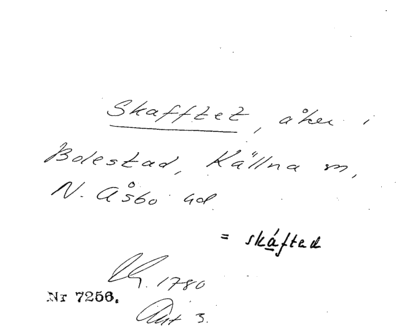 Skafftet, åker i
Bolestad, Källna sn,
N. Åsbo hd
= skáftad
1780
Nr 7256.
Akt 3.